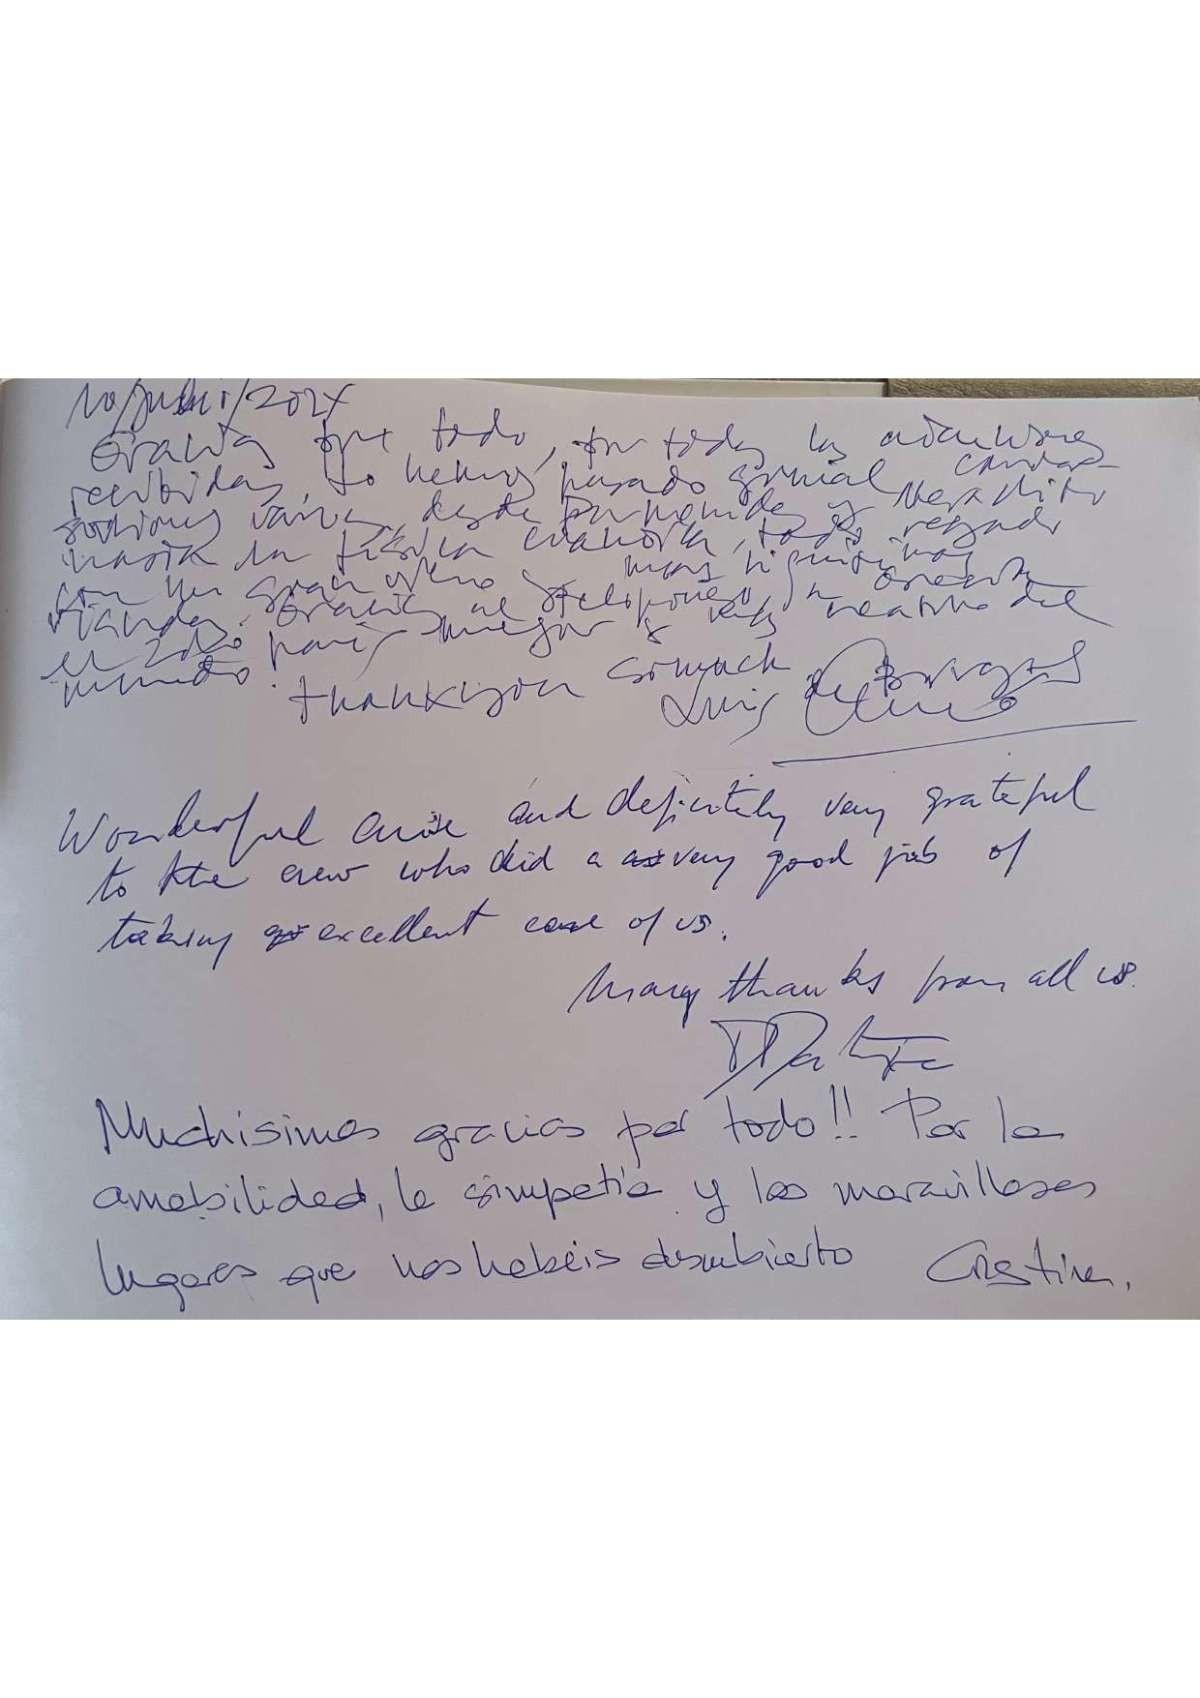 10/Julio/2024
Gracias por todo, por todas las atenciones
recibidas, lo hemos pasado genial
varias, desde Parmenides y Heraclito
hasta la física cuantica, todo regado
con un gran vino y mas
viandas. Gracias al Peloponeso, a Grecia
el pais mejor y mas del
mundo. Thank you so much
Luis
Wonderful cruise and definitely very grateful
to the crew who did a very good job of
taking excellent care of us.
Many thanks from all us.
Muchisimas gracias por todo!! Por la
amabilidad, la simpatia y los maravillosos
lugares que nos habéis descubierto Cristina.